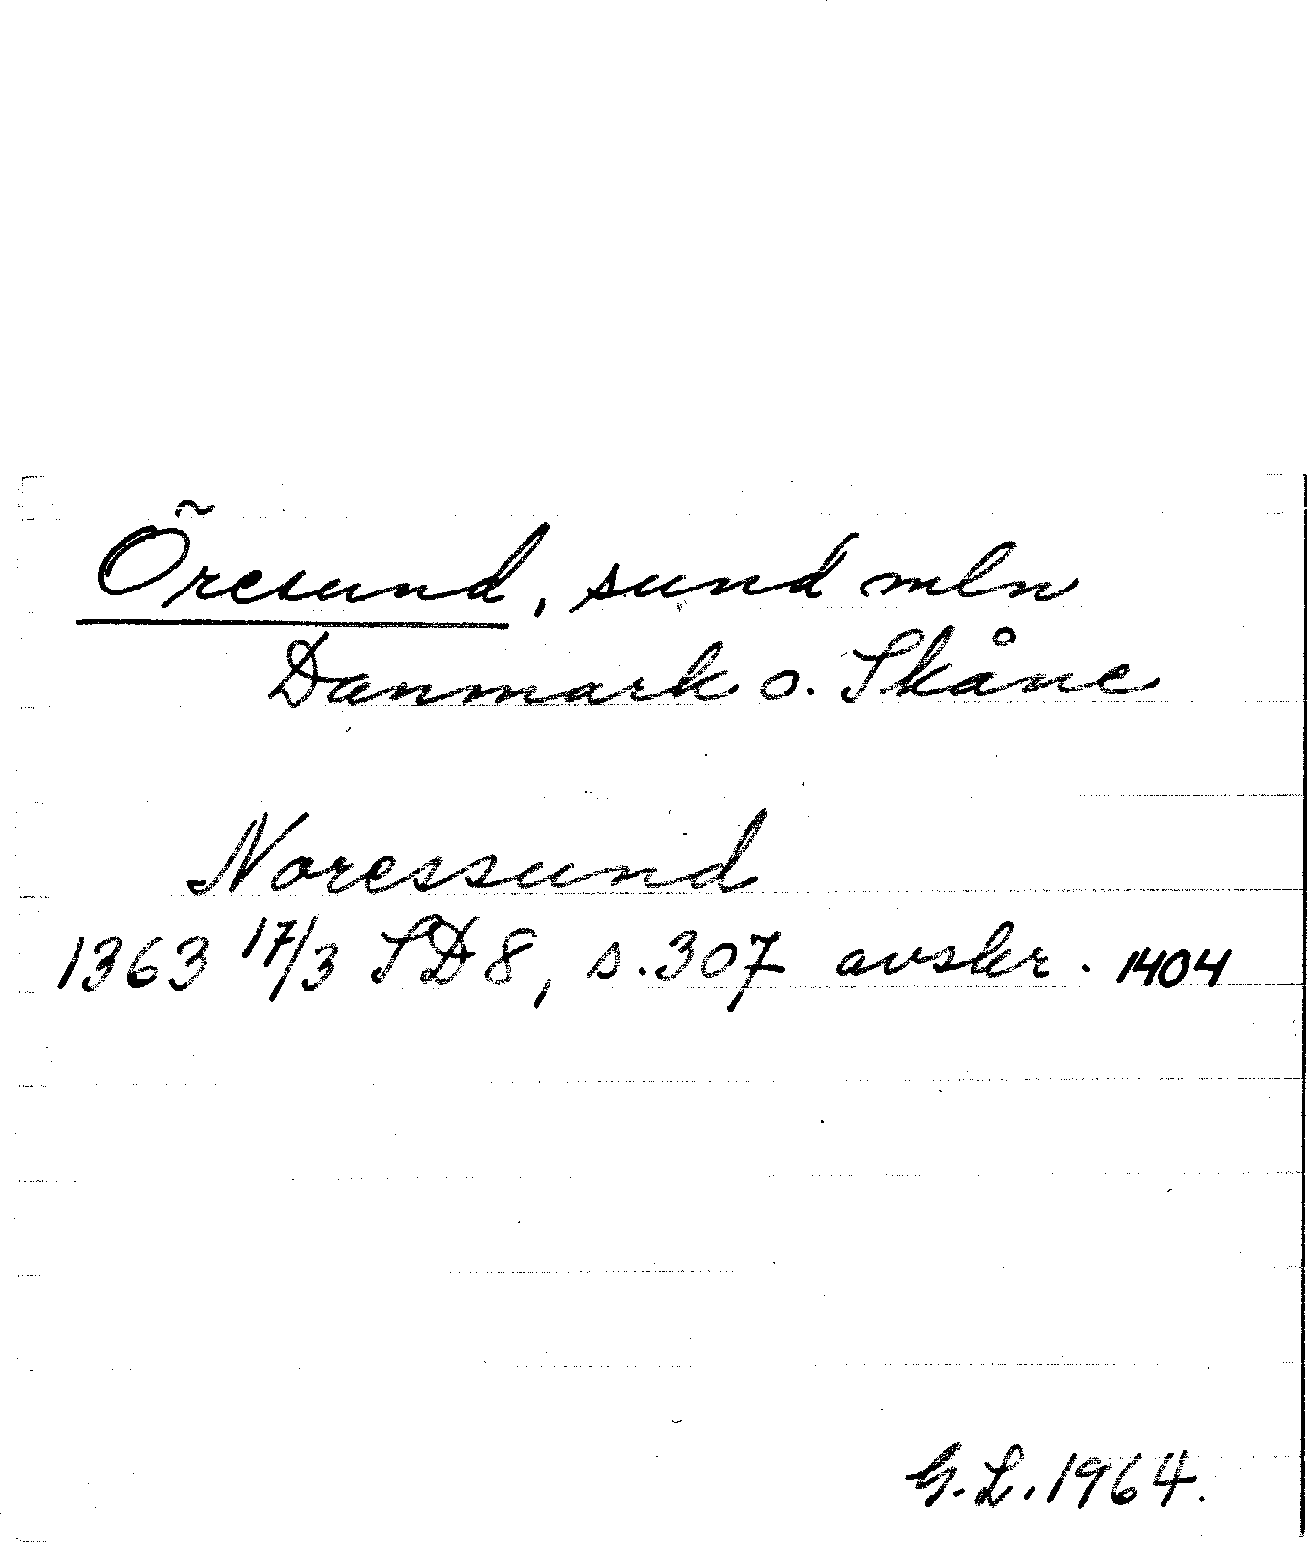 Öresund, sund mln
Danmark o. Skåne
Noressund
1363 17/3 SD 8, s. 307 avskr. 1404
G.L. 1964.